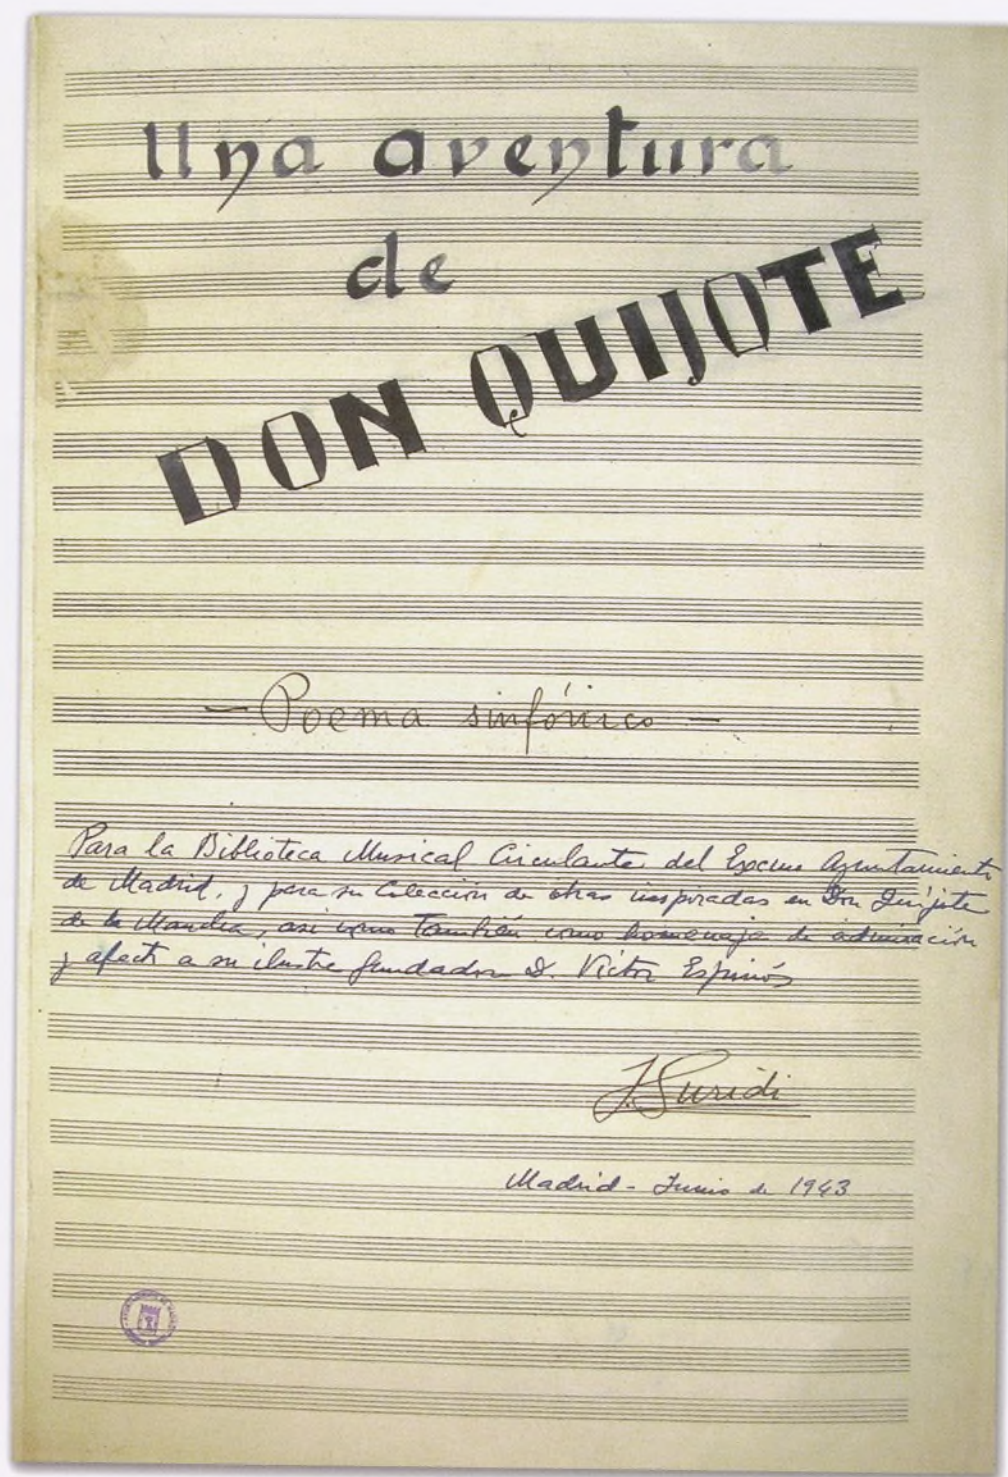 Una aventura
de
DON QUIJOTE
- Poema sinfónico -
Para la Biblioteca Musical Circulante del Excmo Ayuntamiento
de Madrid, y para su Colección de obras inspiradas en Don Quijote
de la Mancha, así como también como homenaje de admiración
y afecto a su ilustre fundador D. Víctor Espinós
J. Guridi
Madrid - Junio de 1943